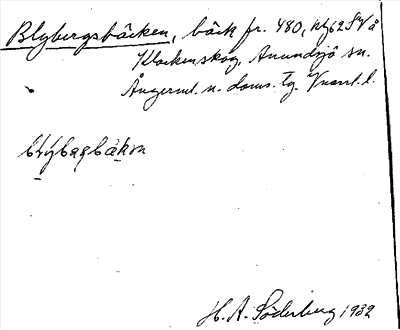 Blybergsbäcken, bäck fr. 480, kbg 62 SV å
Klockenskog, Anundsjö sn.
Ångerml. n. doms. Tg. Vnorrl. l.
blýbærbäkən
H. A. Söderberg 1932